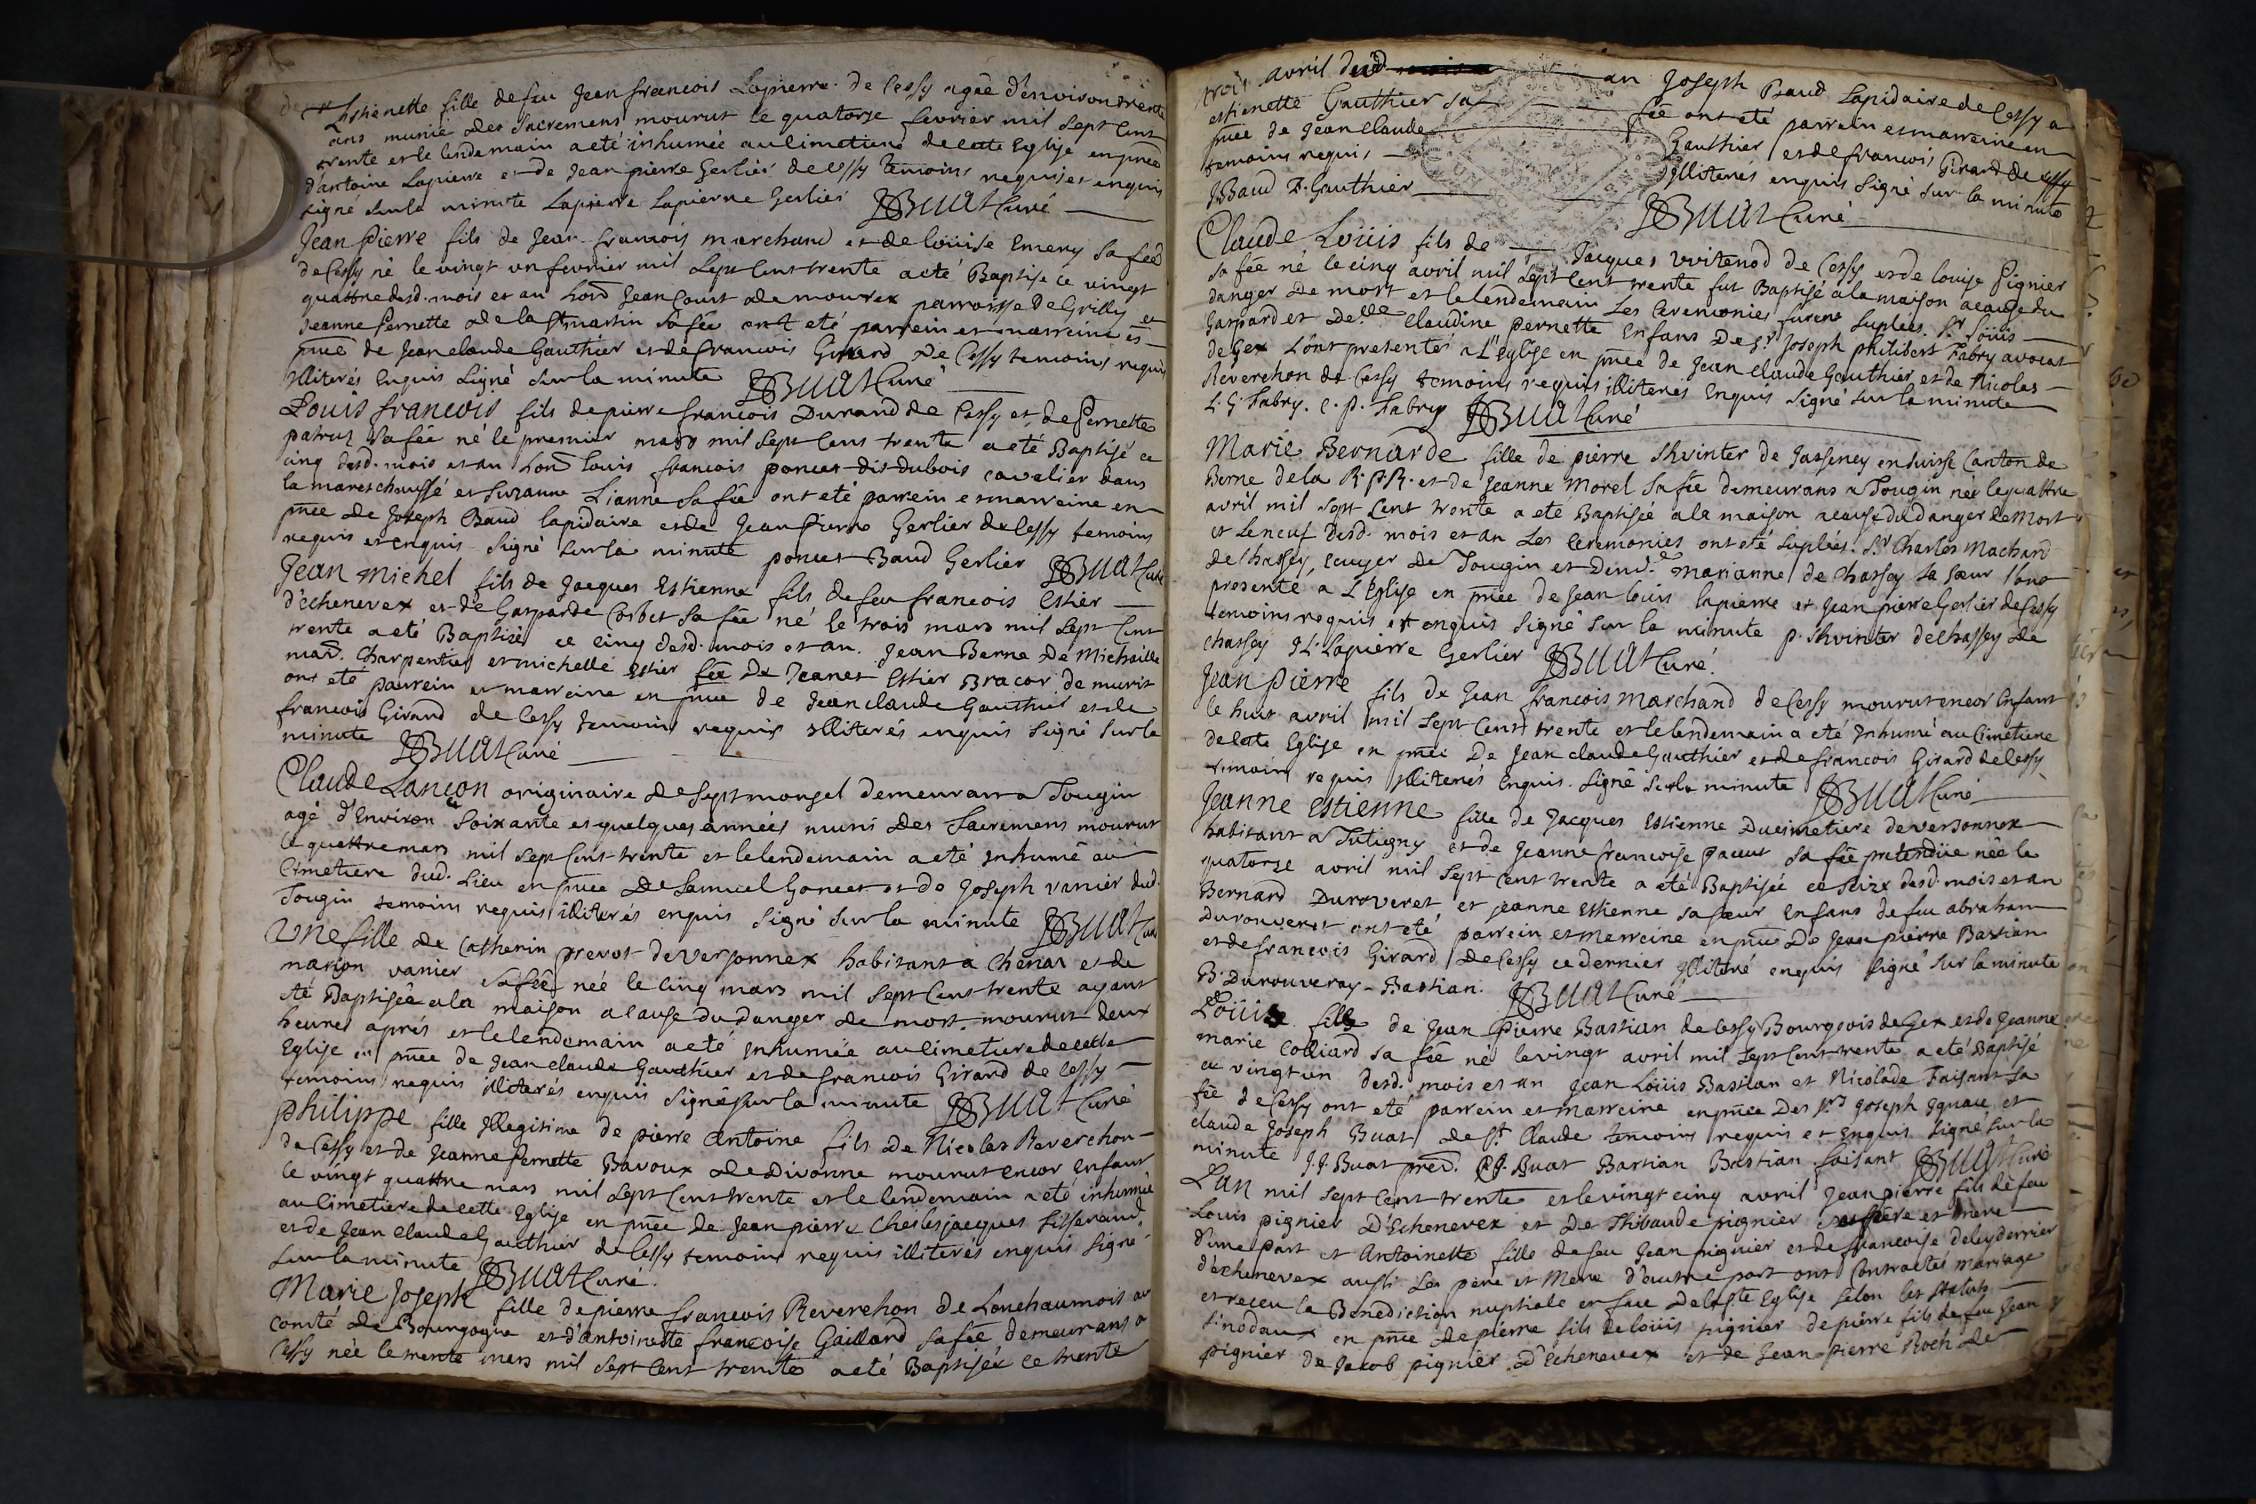 Estienette fille de feu Jean francois Lapierre de Cessy agée d'environ trente
ans munie des sacremens mourut le quatorze fevrier mil sept cent
trente et le lendemain a eté inhumée au cimetiere de cette Eglise en pñce
d'antoine Lapierre et de Jean pierre Gerlier de Cessy temoins requis et enquis
signé sur la minute Lapierre Lapierre Gerlier JBBuat Curé
Jean Pierre fils de Jean francois marchand et de loüise Emery sa fẽe
de Cessy né le vingt un fevrier mil sept cent trente a eté Baptisé ce vingt
quattre desd. mois et an Jean Court de mourex parroisse de Grilly et
Jeanne Pernette de la St martin sa fẽe ont eté parrein et marreine en
pñce de Jean claude Gauthier et de francois Girard de Cessy temoins requis
Illiterés Enquis signé sur la minute JBBuat Curé
Louis francois fils de pierre francois Durand de Cessy et de Pernette
patrus sa fẽe né le premier mars mil sept cent trente a eté Baptisé ce
cinq desd. mois et an louis francois poncet dit Dubois cavalier dans
la mareschaussé et Suzanne Lianne sa fẽe ont eté parrein et marreine en
pñce de Joseph Baud lapidaire et de Jean Pierre Gerlier de Cessy temoins
requis et enquis signé sur la minute poncet Baud Gerlier JBBuat Curé
Jean Michel fils de Jacques Estienne fils de feu francois Estier
d'echenevex et de Gasparde Corbet sa fẽe né le trois mars mil sept Cent
trente a eté Baptisé ce cinq desd. mois et an. Jean Berne de Michaille
mad. Charpentier et michelle Estier fẽe de Jeanet Estier Bracor de murit
ont eté parrein et marreine en pñce de Jean claude Gauthier et de
francois Girard de Cessy temoins requis Illiterés enquis signé sur la
minute JBBuat Curé
Claude Lançon originaire de Septmongel demeurant a Tougin
agé d'Environ soixante et quelques années muni des Sacremens mourut
le quattre mars mil sept Cent trente et le lendemain a eté inhumé au
Cimetiere dud. Lieu en pñce de Samuel Goncet et de Joseph vanier dud.
Tougin temoins requis illiterés enquis signé sur la minute JBBuat Curé
Une fille de Catherin prevot de versonnex habitant a Chenaz et de
marion vanier sa fẽe née le cinq mars mil sept Cent trente ayant
eté Baptisée a la maison a cause du Danger de mort mourut deux
heures aprés et le lendemain a eté Inhumée au Cimetiere de cette
Eglise en pñce de Jean claude Gauthier et de francois Girard de Cessy
temoins requis illiterés enquis signé sur la minute JBBuat Curé
Philippe fille Illegitime de pierre Antoine fils de Nicolas Reverchon
de Cessy et de Jeanne Pernette Bavoux de Divonne mourut encor Enfant
le vingt quattre mars mil sept Cent trente et le lendemain a eté inhumée
au Cimetiere de cette Eglise en pñce de Jean pierre Charles jacques
et de Jean claude Gauthier de Cessy temoins requis illiterés enquis signé
sur la minute JBBuat Curé.
Marie Joseph fille de pierre francois Reverchon de Lonchaumois au
comté de Bourgogne et d'antoinette francoise Gaillard sa fẽe demeurans a
Cessy née le trente mars mil sept Cent trente a eté Baptisée ce trente
trois avril dud. an Joseph Baud Lapidaire de Cessy a
estienette Gauthier sa fẽe ont eté parrein et marreine en
pñce de Jean claude Gauthier et de francois Girard de Cessy
temoins requis Illiterés enquis signé sur la minute
J Baud F. Gauthier JBBuat Curé
Claude Loüis fils de Jacques vuitenod de Cessy et de louise Pignier
sa fẽe né le cinq avril mil sept Cent trente fut Baptisé a la maison a cause du
danger de mort et le lendemain Les Ceremonies furent suplées. Sr Loüis
Gaspard et Delle Claudine Pernette Enfans de Sr Joseph philibert Fabry avocat
de Gex L'ont presenté a L'Eglise en pñce de Jean claude Gauthier et de Nicolas
Reverchon de Cessy temoins requis illiterés Enquis signé sur la minute
L. G. Fabry. C. p. Fabry JBBuat Curé
Marie Bernarde fille de pierre Shvinter de Jasseney en suisse Canton de
Berne de la R. P. R. et de Jeanne Morel sa fẽe demeurans a Tougin née le quattre
avril mil sept Cent trente a eté Baptisée a la maison a cause du danger de Mort
et le neuf desd. mois et an Les Ceremonies ont eté suplées. Sr Charles Machard
de Chassey, ecuyer de Tougin et Marianne de Chassey sa sœur l'ont
presenté a L'Eglise en pñce de Jean louis lapierre et Jean pierre Gerlier de Cessy
temoins requis et enquis signé sur la minute p. Shvinter de Chassey de
Chassey J L. Lapierre Gerlier JBBuat Curé.
Jean Pierre fils de Jean francois Marchand de Cessy mourut encor Enfant
le huit avril mil sept Cent trente et le lendemain a eté Inhumé au Cimetiere
de cette Eglise en pñce De Jean claude Gauthier et de francois Girard de Cessy
temoins requis Illiterés Enquis signé sur la minute JBBuat Curé
Jeanne Estienne fille de Jacques Estienne Ducimetiere de versonnex
habitant a Tutigny et de Jeanne francoise pacut sa fẽe pretendüe née le
quatorze avril mil sept Cent trente a eté Baptisée ce seize desd. mois et an
Bernard Duroveret et jeanne Estienne sa sœur Enfans de feu abraham
Durouveret ont eté parrein et Merreine en pñce De Jean pierre Bastian
et de francois Girard de Cessy ce dernier Illiteré enquis signé sur la minute
B. Durouveray - Bastian. JBBuat Curé
Loüis fils de Jean Pierre Bastian de Cessy Bourgeois de Gex et de Jeanne
marie Colliard sa fẽe né le vingt avril mil sept Cent trente a eté Baptisé
ce vingt un desd. mois et an Jean Loüis Bastian et Nicolade Faisant sa
fẽe de Cessy ont eté parrein et marreine en pñce Des Srs Joseph Ignace et
claude Joseph Buat de St Claude temoins requis et enquis signé sur la
minute J. J. Buat C J. Buat Bastian Bastian faisant JBBuat Curé
L'an mil sept Cent trente et le vingt cinq avril Jean pierre fils de feu
Louis pignier D'Echenevex et de Thibaude pignier ses père et mere
d'une part et Antoinette fille de feu Jean pignier et de francoise
d'echenevex aussi ses pere et Mere d'autre part ont Contractés marriage
et receu la Benediction nuptiale en face de la Ste Eglise selon les statuts
sinodaux en pñce de pierre fils de loüis pignier de pierre fils de feu Jean
pignier de Jacob pignier D'Echenevex et de Jean pierre Roch de